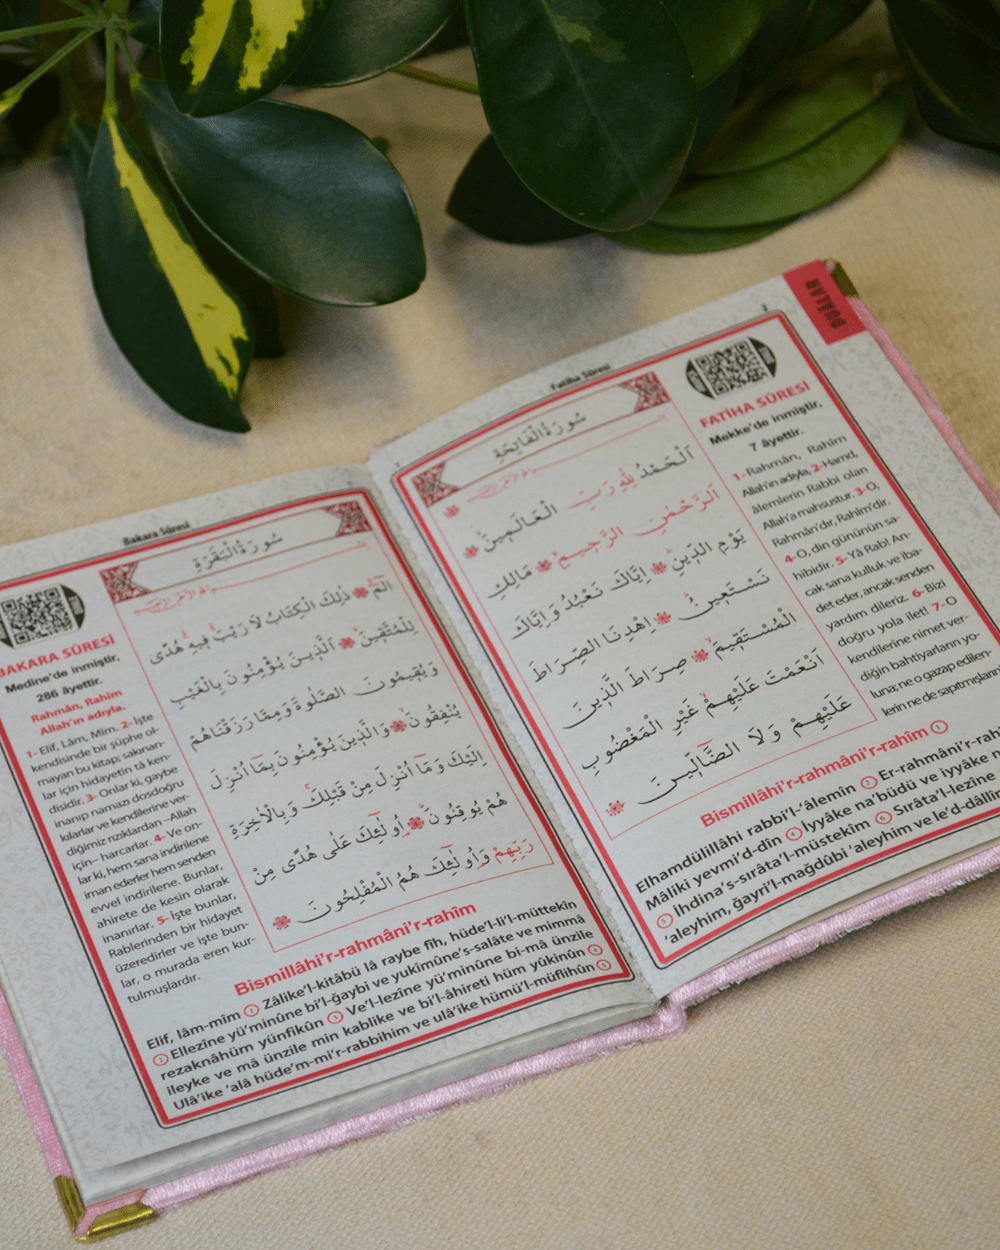 DUÂLAR
2
Fatiha Sûresi
سُورَةُ الْفَاتِحَةِ
اَلْحَمْدُ لِلّٰهِ رَبِّ الْعَالَمِينَۙ
اَلرَّحْمٰنِ الرَّحِيمِۙ مَالِكِ
يَوْمِ الدِّينِۜ اِيَّاكَ نَعْبُدُ وَاِيَّاكَ
نَسْتَعِينُۜ اِهْدِنَا الصِّرَاطَ
الْمُسْتَقِيمَۙ صِرَاطَ الَّذِينَ
اَنْعَمْتَ عَلَيْهِمْۙ غَيْرِ الْمَغْضُوبِ
عَلَيْهِمْ وَلَا الضَّٓالِّينَ
FATİHA SÛRESİ
Mekke'de inmiştir,
7 âyettir.
1- Rahmân, Rahîm
Allah'ın adıyla, 2- Hamd,
âlemlerin Rabbi olan
Allah'a mahsustur. 3- O,
Rahmân'dır, Rahîm'dir.
4- O, din gününün sa-
hibidir. 5- Yâ Rab! An-
cak sana kulluk ve iba-
det eder, ancak senden
yardım dileriz. 6- Bizi
doğru yola ilet! 7- O
kendilerine nimet ver-
diğin bahtiyarların yo-
luna; ne o gazap edilen-
lerin ne de sapıtmışların
Bismillâhi'r-rahmâni'r-rahîm 1
Elhamdülillâhi rabbi'l-'âlemîn 2 Er-rahmâni'r-rahî
Mâliki yevmi'd-dîn 4 İyyâke na'büdü ve iyyâke n
5 İhdina's-sırâta'l-müstekîm 6 Sırâta'l-lezîne
'aleyhim, ğayri'l-mağdûbi 'aleyhim ve le'd-dâllîn
Bakara Sûresi
سُورَةُ الْبَقَرَةِ
الٓمٓۜ ذٰلِكَ الْكِتَابُ لَا رَيْبَۚ فِيهِۚ هُدًى
لِلْمُتَّقِينَۙ اَلَّذِينَ يُؤْمِنُونَ بِالْغَيْبِ
وَيُقِيمُونَ الصَّلٰوةَ وَمِمَّا رَزَقْنَاهُمْ
يُنْفِقُونَۙ وَالَّذِينَ يُؤْمِنُونَ بِمَٓا اُنْزِلَ
اِلَيْكَ وَمَٓا اُنْزِلَ مِنْ قَبْلِكَۚ وَبِالْاٰخِرَةِ
هُمْ يُوقِنُونَۜ اُو۬لٰٓئِكَ عَلٰى هُدًى مِنْ
رَبِّهِمْ وَاُو۬لٰٓئِكَ هُمُ الْمُفْلِحُونَ
BAKARA SÛRESİ
Medîne'de inmiştir,
286 âyettir.
Rahmân, Rahîm
Allah'ın adıyla.
1- Elif, Lâm, Mîm. 2- İşte
kendisinde bir şüphe ol-
mayan bu kitap; sakınan-
lar için hidayetin tâ ken-
disidir. 3- Onlar ki, gaybe
inanıp namazı dosdoğru
kılarlar ve kendilerine ver-
diğimiz rızıklardan –Allah
için– harcarlar. 4- Ve on-
lar ki, hem sana indirilene
iman ederler hem senden
evvel indirilene. Bunlar,
ahirete de kesin olarak
inanırlar. 5- İşte bunlar,
Rablerinden bir hidayet
üzeredirler ve işte bun-
lar, o murada eren kur-
tulmuşlardır.
Bismillâhi'r-rahmâni'r-rahîm
Elif, lâm-mîm 1 Zâlike'l-kitâbü lâ raybe fîh, hüde'l-li'l-müttekîn
2 Ellezîne yü'minûne bi'l-ğaybi ve yukîmûne's-salâte ve mimmâ
rezaknâhüm yünfikûn 3 Ve'l-lezîne yü'minûne bi-mâ ünzile
ileyke ve mâ ünzile min kablike ve bi'l-âhireti hüm yûkinûn 4
Ulâ'ike 'alâ hüde'm-mi'r-rabbihim ve ulâ'ike hümü'l-müflihûn 5